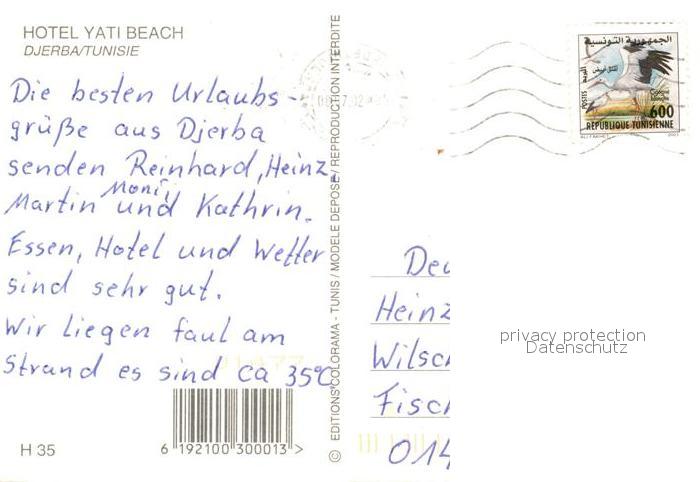 HOTEL YATI BEACH
DJERBA/TUNISIE
Die besten Urlaubs-
grüße aus Djerba
senden Reinhard, Heinz,
Moni,
Martin und Kathrin.
Essen, Hotel und Wetter
sind sehr gut.
Wir liegen faul am
Strand es sind ca 35°C
H 35
6 192100 300013 >
© EDITIONS COLORAMA - TUNIS / MODELE DEPOSE / REPRODUCTION INTERDITE
الجمهورية التونسية
البريد
POSTES
600
REPUBLIQUE TUNISIENNE
2001
Heinz
privacy protection
Datenschutz
014